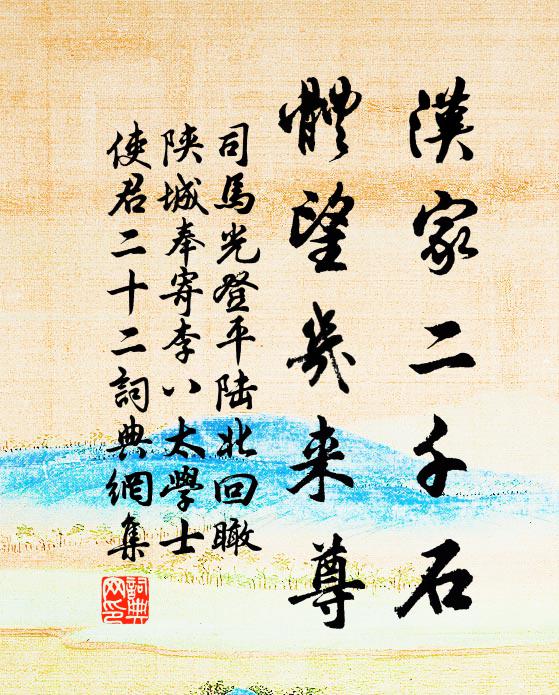 漢家二千石
體望幾來尊
司馬光登平陸北回瞰
陝城奉寄李八太學士
使君二十二詞典網集
詞典網印